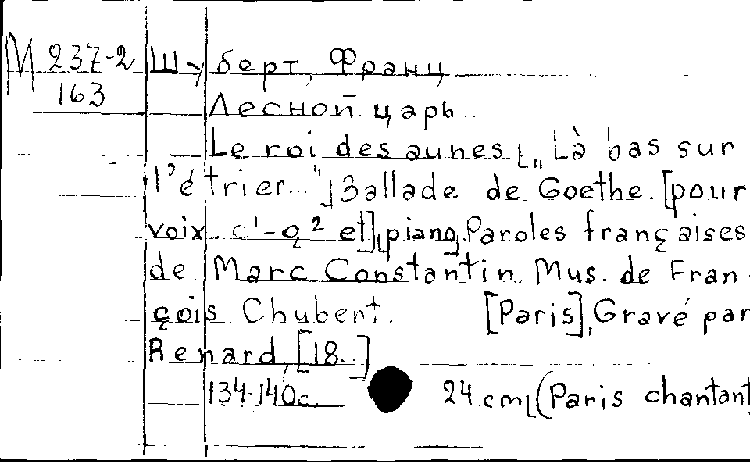 М 237-2 Шуберт, Франц
163
Лесной царь.
Le roi des aunes [„Là bas sur
l'étrier..."] Ballade de Goethe. [pour
voix c¹-g² et] piano. Paroles françaises
de Marc Constantin. Mus. de Fran-
çois Chubert. [Paris], Gravé par
Renard, [18..]
134-140с. 24 cm. (Paris chantant